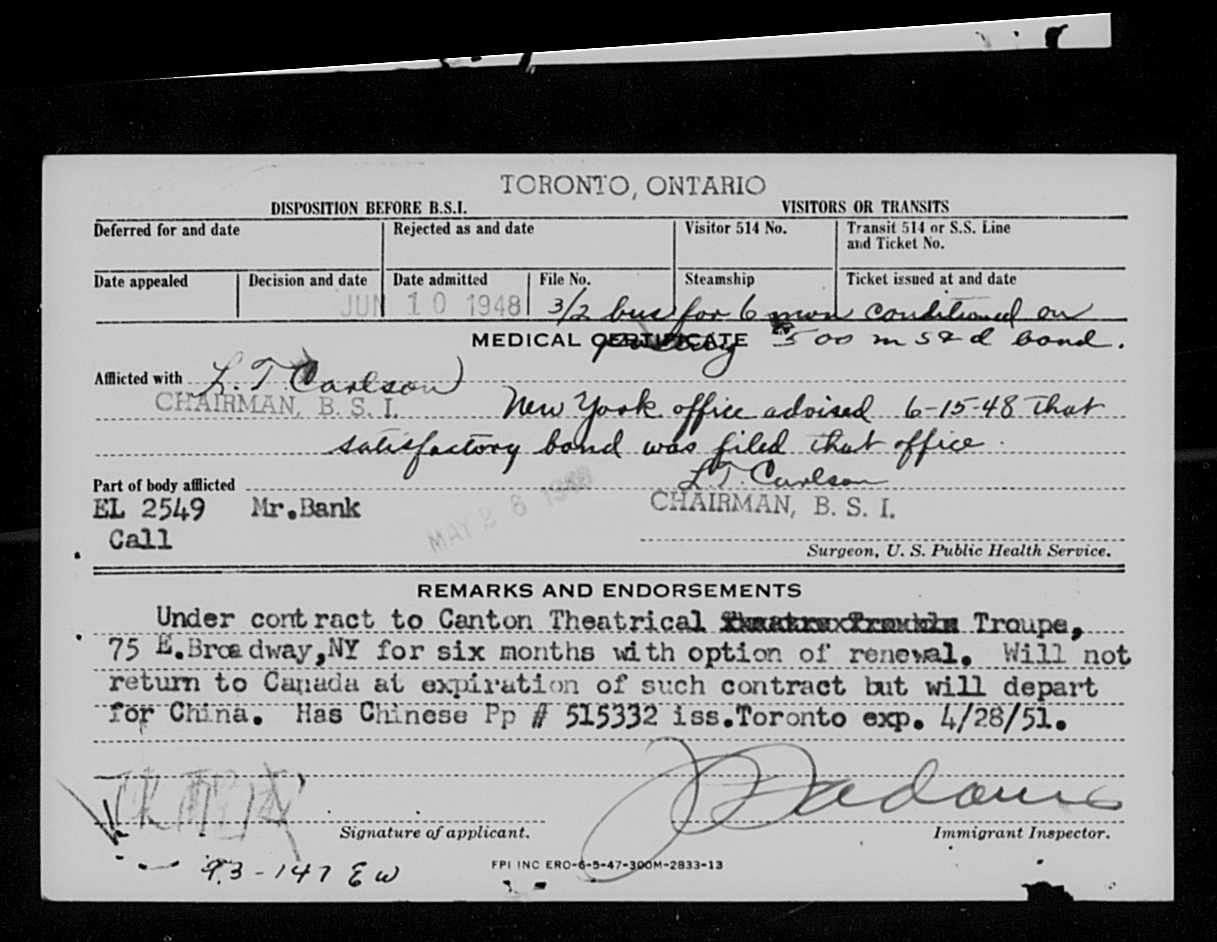 TORONTO, ONTARIO
DISPOSITION BEFORE B.S.I. VISITORS OR TRANSITS
Deferred for and date Rejected as and date Visitor 514 No. Transit 514 or S.S. Line and Ticket No.
Date appealed Decision and date Date admitted File No. Steamship Ticket issued at and date
JUN 10 1948 3/2 bus for 6 mon conditioned on
MEDICAL CERTIFICATE posting 500 m s & d bond.
Afflicted with L. T. Carlson
CHAIRMAN, B. S. I. New York office advised 6-15-48 that
satisfactory bond was filed that office.
Part of body afflicted L. T. Carlson
EL 2549 Mr.Bank MAY 26 1948 CHAIRMAN, B. S. I.
Call
Surgeon, U. S. Public Health Service.
REMARKS AND ENDORSEMENTS
Under contract to Canton Theatrical Troupe,
75 E.Broadway,NY for six months with option of renewal. Will not
return to Canada at expiration of such contract but will depart
for China. Has Chinese Pp # 515332 iss.Toronto exp. 4/28/51.
Signature of applicant. Immigrant Inspector.
93-147 EW FPI INC ERO-6-5-47-300M-2833-13